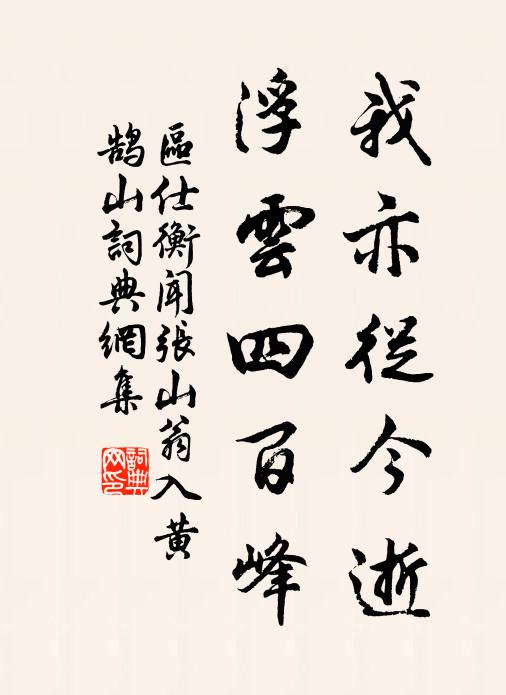 我亦從今逝
浮雲四百峰
區仕衡聞張山翁入黃
鵠山詞典網集
詞典網印